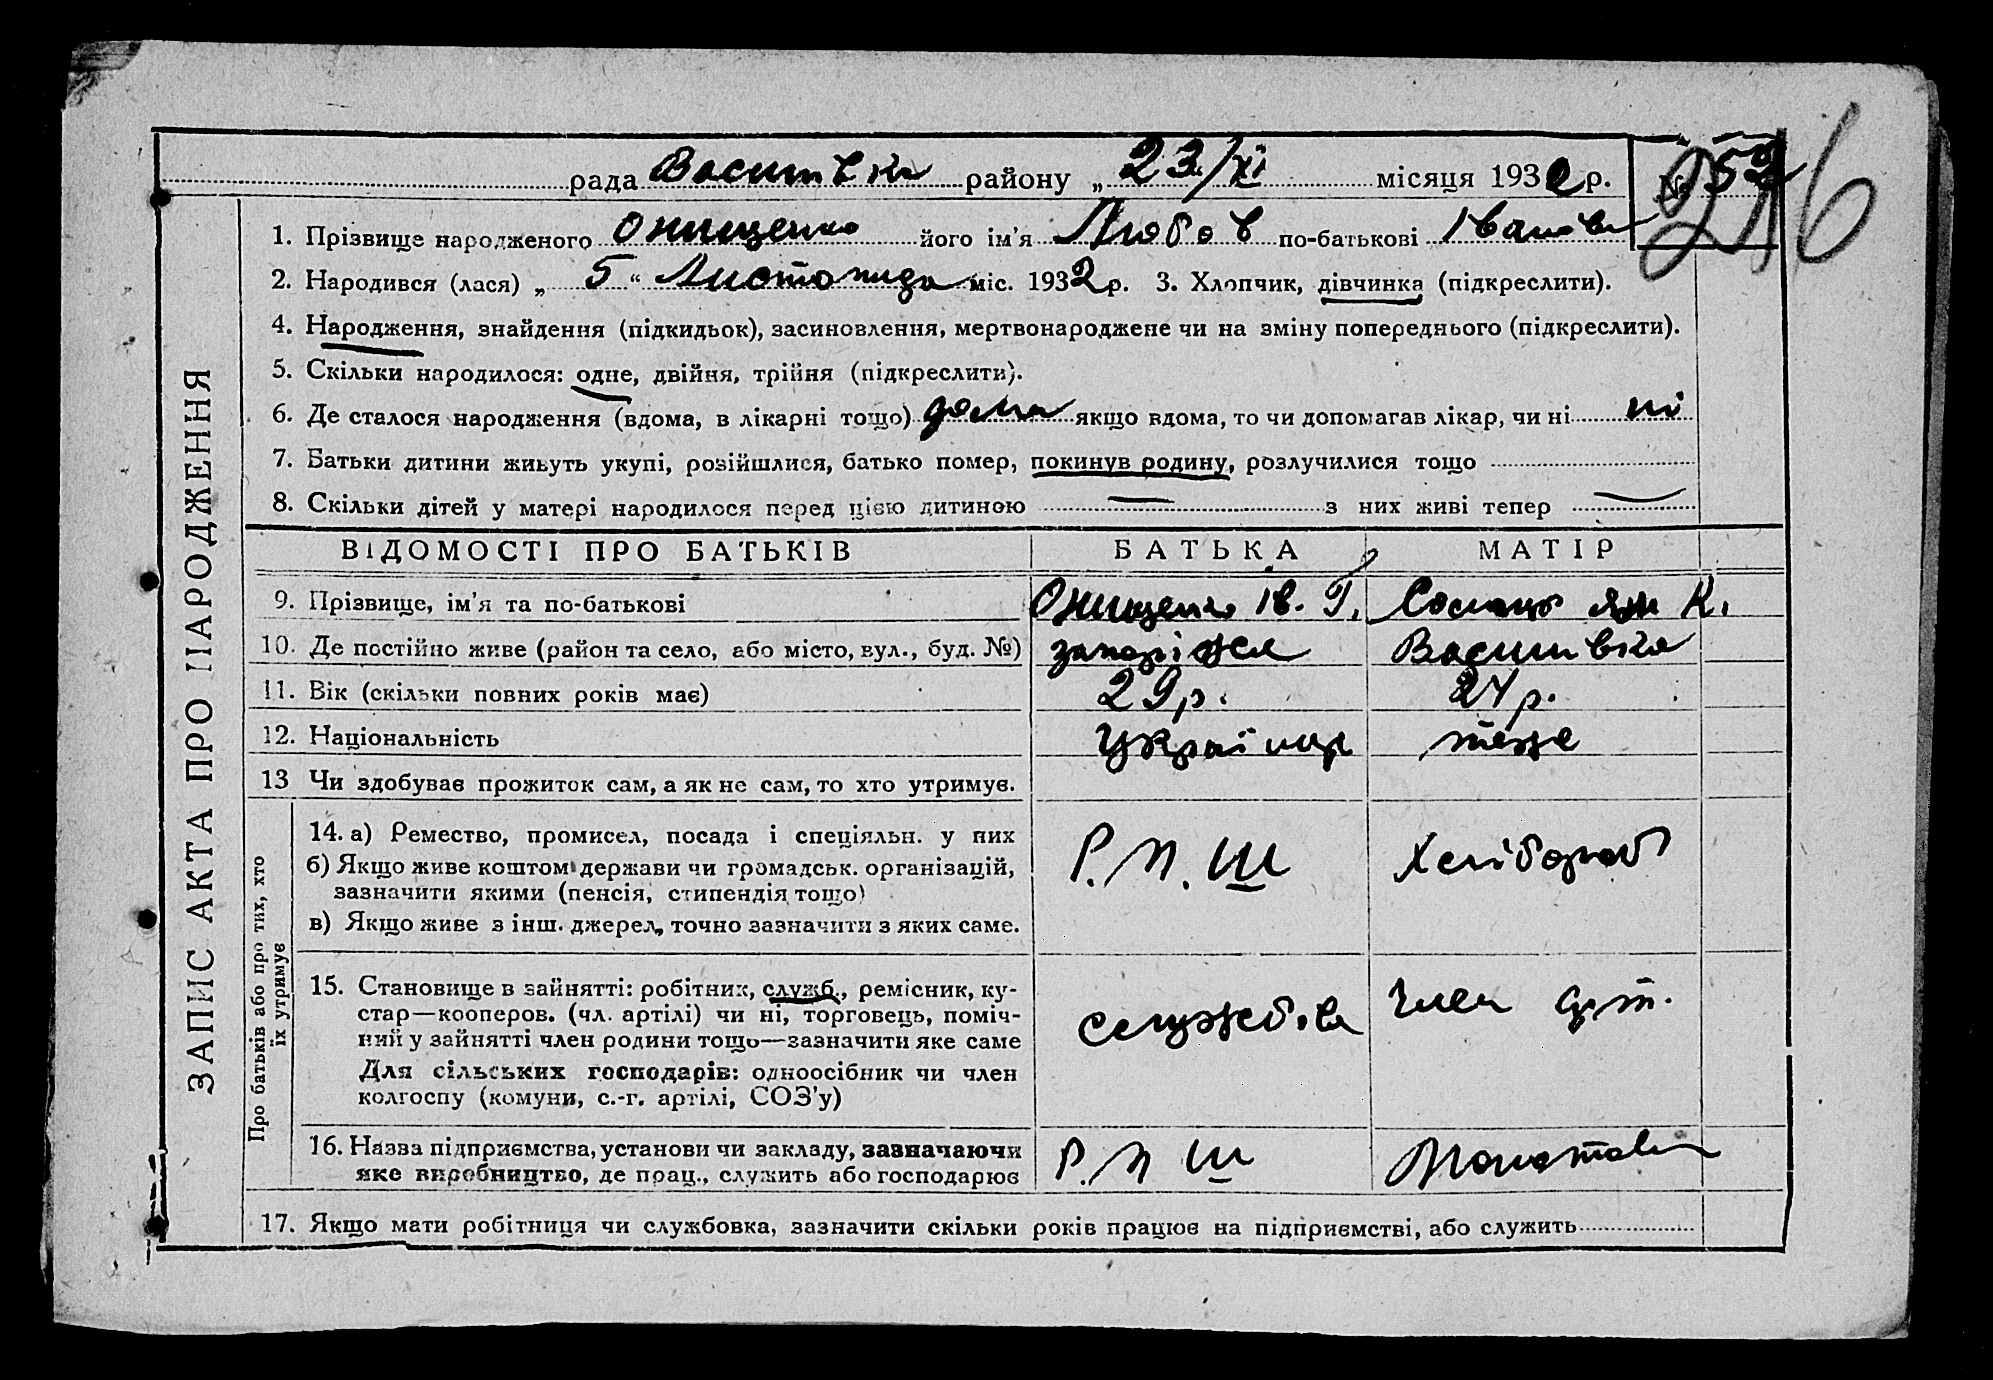 216
рада Василівка району „ 23/XI місяця 1932 р. № 59
ЗАПИС АКТА ПРО НАРОДЖЕННЯ
1. Прізвище народженого Онищенко його ім’я Любов по-батькові Іванівна
2. Народився (лася) „ 5 “ Листопада міс. 1932 р. 3. Хлопчик, дівчинка (підкреслити).
4. Народження, знайдення (підкидьок), засиновлення, мертвонароджене чи на зміну попереднього (підкреслити).
5. Скільки народилося: одне, двійня, трійня (підкреслити).
6. Де сталося народження (вдома, в лікарні тощо) дома якщо вдома, то чи допомагав лікар, чи ні ні
7. Батьки дитини живуть укупі, розійшлися, батько помер, покинув родину, розлучилися тощо
8. Скільки дітей у матері народилося перед цією дитиною — з них живі тепер —
ВІДОМОСТІ ПРО БАТЬКІВ БАТЬКА МАТІР
9. Прізвище, ім’я та по-батькові Онищенко Ів. Г. К.
10. Де постійно живе (район та село, або місто, вул., буд. №) Запоріжжя Василівка
11. Вік (скільки повних років має) 29 р. 24 р.
12. Національність Українц теже
13 Чи здобуває прожиток сам, а як не сам, то хто утримує.
Про батьків або про тих, хто
їх утримує
14. а) Ремество, промисел, посада і спеціяльн. у них Р. П. Ш Хлібороб
б) Якщо живе коштом держави чи громадськ. організацій,
зазначити якими (пенсія, стипендія тощо)
в) Якщо живе з інш. джерел, точно зазначити з яких саме.
15. Становище в зайнятті: робітник, служб., ремісник, ку-
стар—кооперов. (чл. артілі) чи ні, торговець, поміч- службов Член арт.
ний у зайнятті член родини тощо—зазначити яке саме
Для сільських господарів: одноосібник чи член
колгоспу (комуни, с.-г. артілі, СОЗ’у)
16. Назва підприємства, установи чи закладу, зазначаючи Р. П Ш
яке виробництво, де прац., служить або господарює
17. Якщо мати робітниця чи службовка, зазначити скільки років працює на підприємстві, або служить